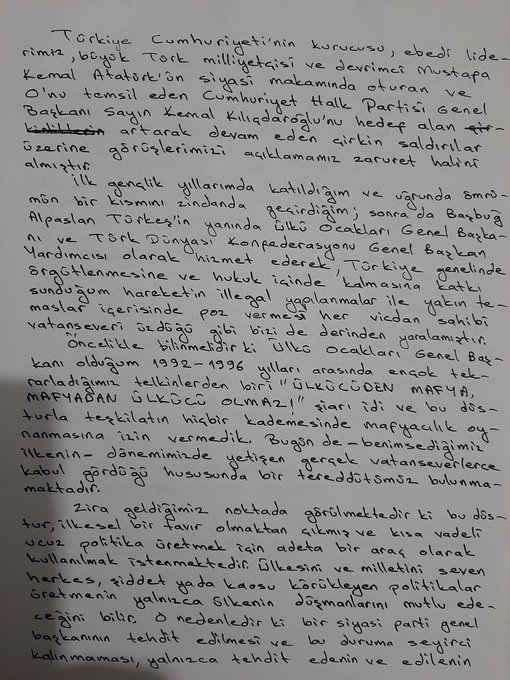 Türkiye Cumhuriyeti'nin kurucusu, ebedi lide-
rimiz, büyük Türk milliyetçisi ve devrimci Mustapa
Kemal Atatürk'ün siyasi makamında oturan ve
O'nu tamsil eden Cumhuriyet Halk Partisi Genel
Başkanı Sayın Kemal Kılıçdaroğlu'nu hedef alan
artarak devam eden çirkin saldırılar
üzerine görüşlerimizi açıklamamız zaruret halini
almıştır.
İlk gençlik yıllarımda katıldığım ve uğrunda ömrü-
mün bir kısmını zindanda geçirdiğim; sonra da Başbuğ
Alpaslan Türkeş'in yanında Ülkü Ocakları Genel Başka-
nı ve Türk Dünyası Konfederasyonu Genel Başkan
Yardımcısı olarak hizmet ederek, Türkiye genelinde
örgütlenmesine ve hukuk içinde kalmasına katkı
sunduğum hareketin illegal yapılanmalar ile yakın te-
maslar içerisinde poz vermesi her vicdan sahibi
vatanseveri üzdüğü gibi bizi de derinden yaralamıştır.
Öncelikle bilinmelidir ki Ülkü Ocakları Genel Baş-
kanı olduğum 1992-1996 yılları arasında ençok tek-
rarladığımız telkinlerden biri "ÜLKÜCÜDEN MAFYA,
MAFYADAN ÜLKÜCÜ OLMAZ!" şiarı idi ve bu düs-
turla teşkilatın hiçbir kademesinde mafyacılık oy-
nanmasına izin vermedik. Bugün de -benimsediğimiz
ilkenin- dönemimizde yetişen gerçek vatanseverlerce
kabul gördüğü hususunda bir tereddütümüz bulunma-
maktadır.
Zira geldiğimiz noktada görülmektedir ki bu düs-
tur, ilkesel bir tavır olmaktan çıkmış ve kısa vadeli
ucuz politika üretmek için adeta bir araç olarak
kullanılmak istenmektedir. Ülkesini ve milletini seven
herkes, şiddet yada kaosu körükleyen politikalar
üretmenin yalnızca ülkenin düşmanlarını mutlu ede-
ceğini bilir. O nedenledir ki bir siyasi parti genel
başkanının tehdit edilmesi ve bu duruma seyirci
kalınmaması, yalnızca tehdit edenin ve edilenin